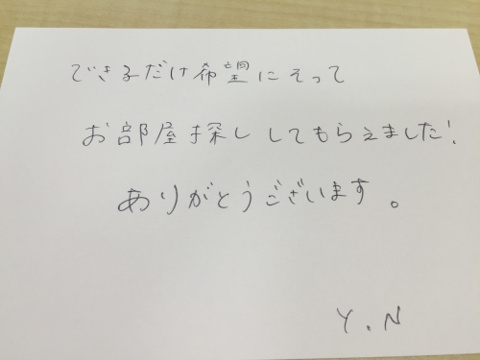 できるだけ希望にそって
お部屋探ししてもらえました!
ありがとうございます。
Y.N